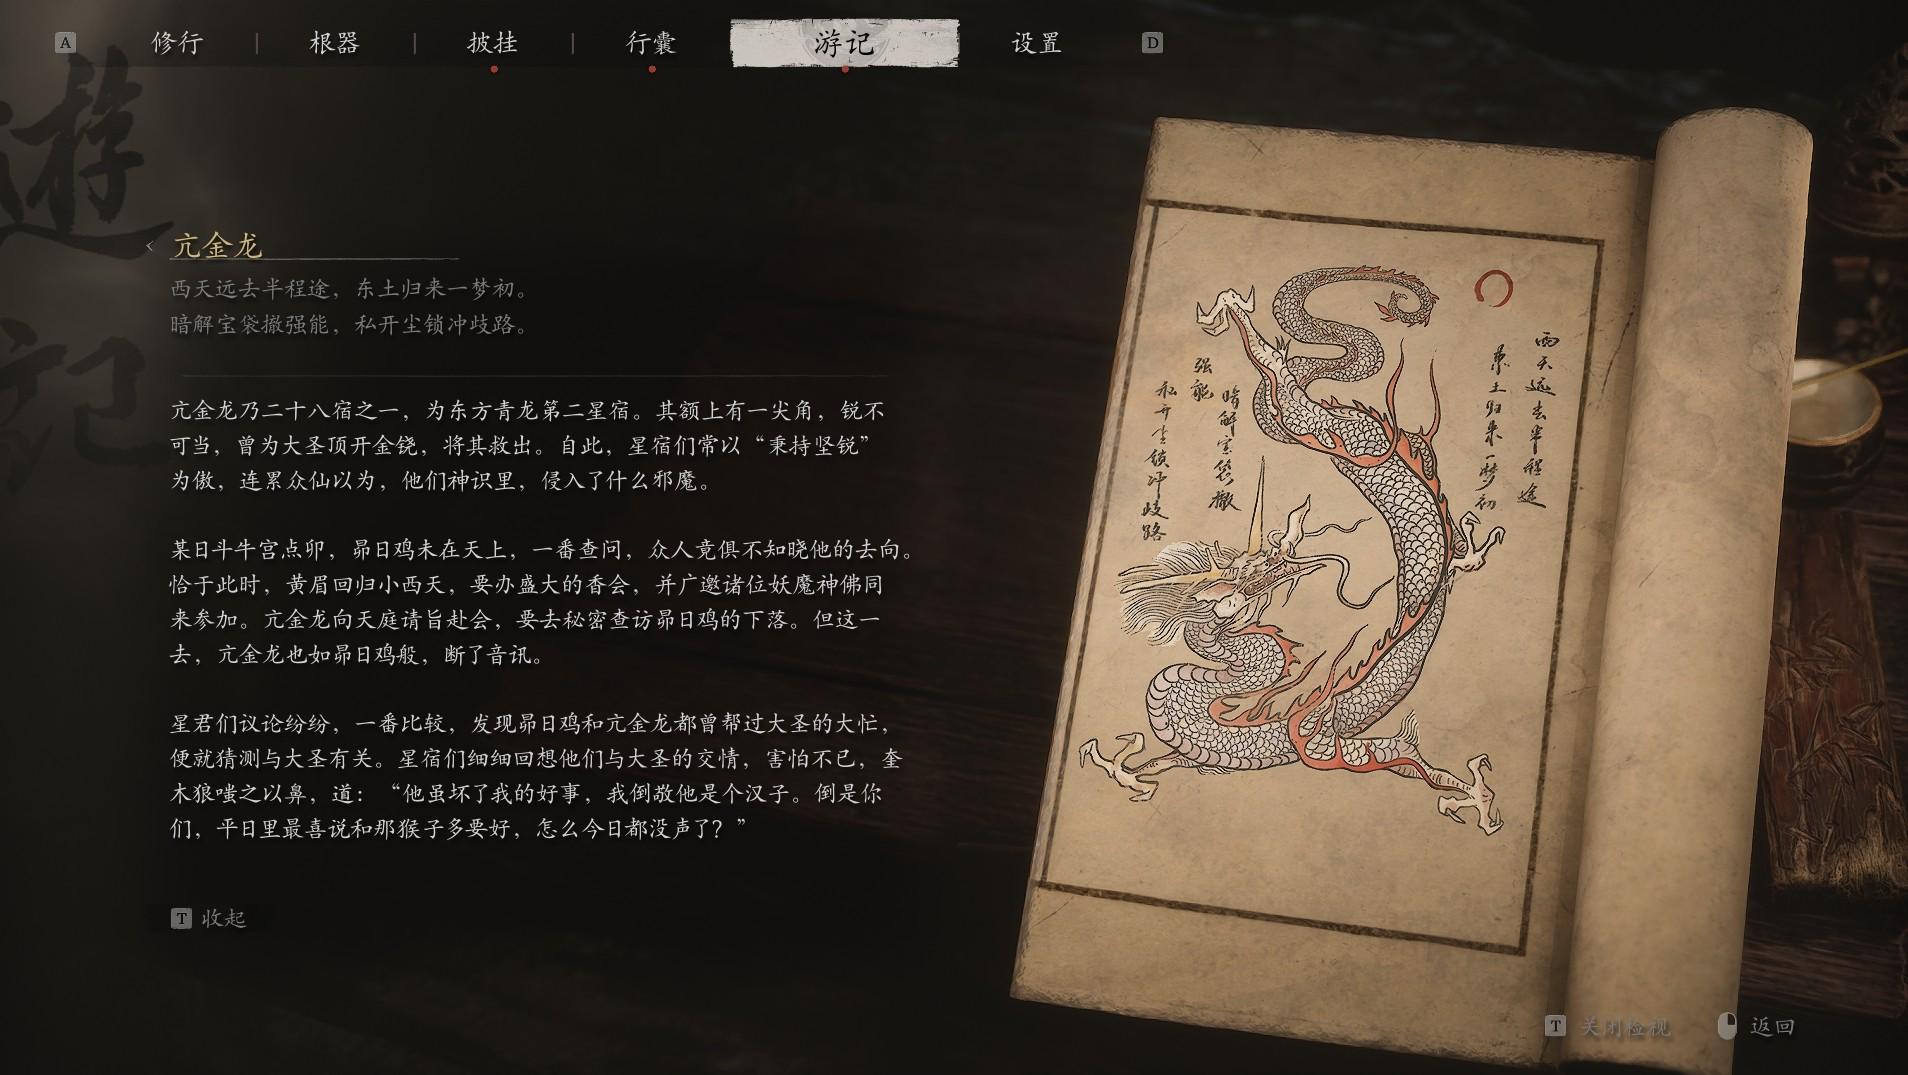 A
修行
根器
披挂
行囊
游记
设置
D
遊
記
亢金龙
西天远去半程途，东土归来一梦初。
暗解宝袋撤强能，私开尘锁冲歧路。
亢金龙乃二十八宿之一，为东方青龙第二星宿。其额上有一尖角，锐不
可当，曾为大圣顶开金铙，将其救出。自此，星宿们常以“秉持坚锐”
为傲，连累众仙以为，他们神识里，侵入了什么邪魔。
某日斗牛宫点卯，昴日鸡未在天上，一番查问，众人竟俱不知晓他的去向。
恰于此时，黄眉回归小西天，要办盛大的香会，并广邀诸位妖魔神佛同
来参加。亢金龙向天庭请旨赴会，要去秘密查访昴日鸡的下落。但这一
去，亢金龙也如昴日鸡般，断了音讯。
星君们议论纷纷，一番比较，发现昴日鸡和亢金龙都曾帮过大圣的大忙，
便就猜测与大圣有关。星宿们细细回想他们与大圣的交情，害怕不已，奎
木狼嗤之以鼻，道：“他虽坏了我的好事，我倒敬他是个汉子。倒是你
们，平日里最喜说和那猴子多要好，怎么今日都没声了？”
T 收起
西天远去半程途
东土归来一梦初
暗解宝袋撤
强能
私开尘锁冲歧路
T 关闭检视
返回